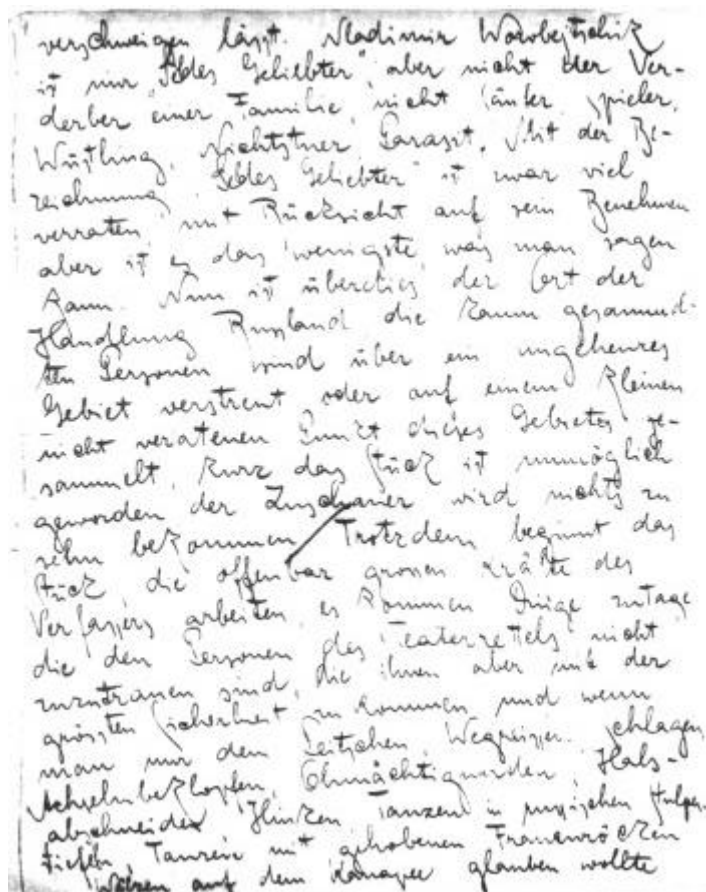 verschweigen lässt. Vladimir Worobejtschik
ist nur „Seldes Geliebter" aber nicht der Ver-
derber einer Familie, nicht Säufer, Spieler,
Wüstling, Nichtstuer Parasit. Mit der Be-
zeichnung „Seldes Geliebter" ist zwar viel
verraten mit Rücksicht auf sein Benehmen
aber ist es das wenigste was man sagen
kann. Nun ist überdies der Ort der
Handlung Russland die kaum gesammel-
ten Personen sind über ein ungeheueres
Gebiet verstreut oder auf einem kleinen
nicht veratenen Punkt dieses Gebietes ge-
sammelt, kurz das Stück ist unmöglich
geworden der Zuschauer wird nichts zu
sehn bekommen Trotzdem beginnt das
Stück die offenbar grossen Kräfte des
Verfassers arbeiten, es kommen Dinge zutage
die den Personen des Teaterzettels nicht
zuzutrauen sind, die ihnen aber mit der
grössten Sicherheit zu kommen und wenn
man nur dem Peitschen, Wegreissen, schlagen
Achselnbeklopfen, Ohnmächtigwerden, Hals-
abschneiden Hinken Tanzen in russischen Stulpen-
stiefeln, Tanzen mit gehobenen Frauenröcken
Wälzen auf dem Kanapee glauben wollte